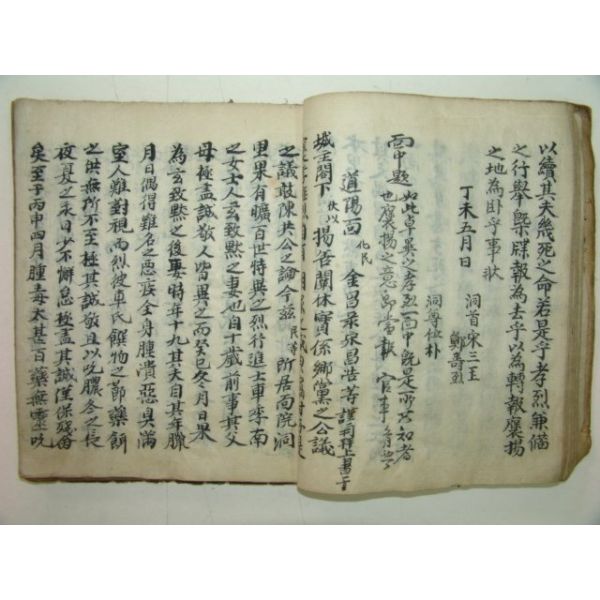 以續其夫幾死之命若是乎孝烈兼備
之行擧槩牒報爲去乎以爲轉報褒揚
之地爲卧乎事狀
丁未五月日
洞首宋三
洞尊位朴
鄭
面中題
如此卓異以孝烈一面中旣是所共知者
也褒揚之意卽當報官事
道陽面化民金昌
宋昌浩等謹百拜上書于
城主閤下伏以揚吿闡休實係鄕黨之公議
之議敢陳共公之論今玆民等所居面院洞
里果有曠百世特異之烈行進士車李南
之女士人玄致默之妻也自十歲前事其父
母極盡誠敬人皆異之而癸巳冬月日果
爲玄致默之後娶時年十九其夫自其年臘
月日偶得難名之惡疾全身腫潰惡臭滿
室人難對視而烈彼車氏饌物之節藥餌
之供無所不至極其誠敬且以吮膿念之長
夜夏之永日少不懈怠極盡其誠僅保殘命
矣至于丙申四月腫毒太甚百藥無靈以